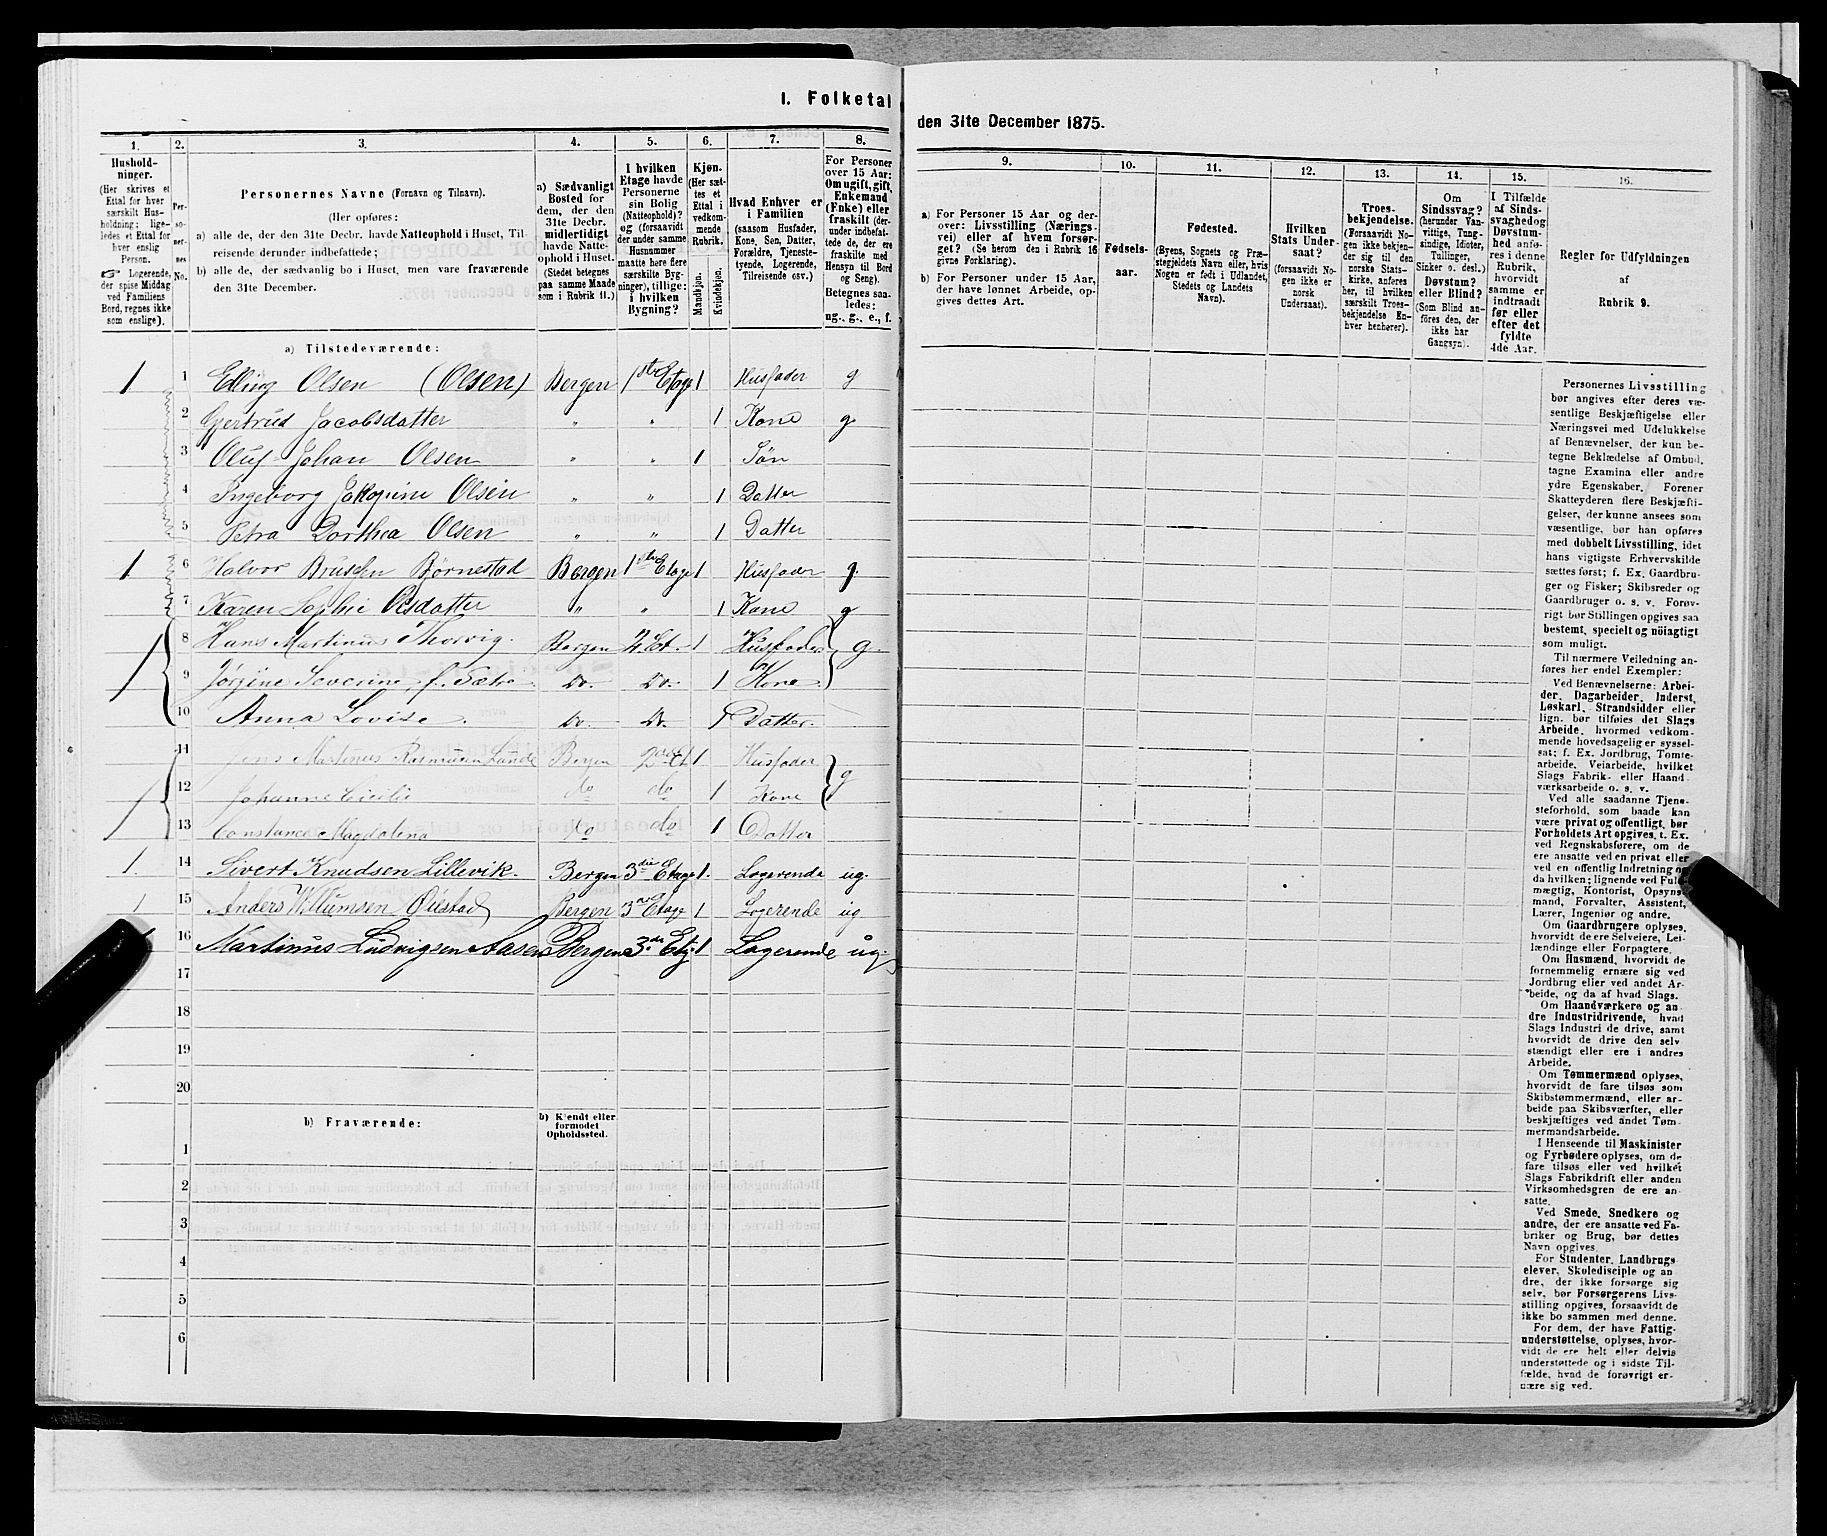 I. Folketal
den 31te December 1875.
1.
2.
3.
4.
5.
6.
7.
8.
Hushold-
ninger.
(Her skrives et
Ettal for hver
særskilt Hus-
holdning; lige-
ledes et Ettal for
hver enslig
Person.
☞ Logerende,
der spise Middag
ved Familiens
Bord, regnes ikke
som enslige).
Per-
so-
ner-
nes
No.
Personernes Navne (Fornavn og Tilnavn).
(Her opføres:
a) alle de, der den 31te Decbr. havde Natteophold i Huset, Til-
reisende derunder indbefattede;
b) alle de, der sædvanlig bo i Huset, men vare fraværende
den 31te December.
a) Sædvanligt
Bosted for
dem, der den
31te Decbr.
midlertidigt
havde Natte-
ophold i Huset.
(Stedet betegnes
paa samme Maade
som i Rubrik 11.)
I hvilken
Etage havde
Personerne
sin Bolig
(Natteophold)?
og (forsaavidt
der under samme
Husnummer
maatte høre flere
særskilte Byg-
ninger), tillige:
i hvilken
Bygning?
Kjøn.
(Her sæt-
tes et
Ettal i
vedkom-
mende
Rubrik.
Mandkjøn.
Kvindekjøn.
Hvad Enhver er
i Familien
(saasom Husfader,
Kone, Søn, Datter,
Forældre, Tjeneste-
tyende, Logerende,
Tilreisende osv.)
For Personer
over 15 Aar:
Om ugift, gift,
Enkemand
(Enke) eller
fraskilt (der-
under indbefat-
tede de, der ere
fraskilte med
Hensyn til Bord
og Seng).
Betegnes saa-
ledes:
ug., g., e., f.
a) Tilstedeværende:
1 1 Elling Olsen (Olsen) Bergen 1ste Etage 1 Husfader g
2 Gjertrud Jacobsdatter " " 1 Kone g
3 Oluf Johan Olsen " " 1 Søn
4 Ingeborg Jakopine Olsen " " 1 Datter
5 Petra Dorthea Olsen " " 1 Datter
1 6 Halvor Brusden Bjørnestad Bergen 1ste Etage 1 Husfader g.
7 Karen Sophie Olsdatter " " 1 Kone g
1 8 Hans Martinus Thorvig. Bergen 2. Et. 1 Husfader g.
9 Jørgine Severine f. Sætre Do. Do. 1 Kone.
10 Anna Lovise. Do. Do. 1 Datter.
1 11 Jens Martinus Rasmusen Lunde Bergen 2den Et 1 Husfader g
12 Johanne Cicilie do do 1 Kone
13 Constance Magdalena do do 1 Datter
1. 14 Sivert Knudsen Lillevik. Bergen 3die Etage 1. Logerende ug.
1 15 Anders Willumsen Øiestad Bergen 3die Etage 1 Logerende ug
16 Martinus Ludvigsen Aasen Bergen 3die Etg 1 Logerende ug.
17
18
19
20
b) Fraværende:
b) Kjendt eller
formodet
Opholdssted.
1
2
3
4
5
6
9.
10.
11.
12.
13.
14.
15.
16.
a) For Personer 15 Aar og der-
over: Livsstilling (Nærings-
vei) eller af hvem forsør-
get? (Se herom den i Rubrik 16
givne Forklaring).
b) For Personer under 15 Aar,
der have lønnet Arbeide, op-
gives dettes Art.
Fødsels-
aar.
Fødested.
(Byens, Sognets og Præ-
stegjeldets Navn eller, hvis
Nogen er født i Udlandet,
Stedets og Landets
Navn).
Hvilken
Stats Under-
saat?
(forsaavidt No-
gen ikke er
norsk
Undersaat).
Troes-
bekjendelse.
(Forsaavidt No-
gen ikke bekjen-
der sig til den
norske Stats-
kirke, anføres
her, til hvilken
særskilt Troes-
bekjendelse En-
hver henhører).
Om
Sindssvag?
(herunder Van-
vittige, Tung-
sindige, Idioter,
Tullinger,
Sinker o. desl.)
Døvstum?
eller Blind?
(Som Blind an-
föres den, der
ikke har
Gangsyn).
I Tilfælde
af Sinds-
svaghed og
Døvstum-
hed anfø-
res i denne
Rubrik,
hvorvidt
samme er
indtraadt
før eller
efter det
fyldte
4de Aar.
Regler for Udfyldningen
af
Rubrik 9.
Personernes Livsstilling
bør angives efter deres væ-
sentlige Beskjæftigelse eller
Næringsvei med Udelukkelse
af Benævnelser, der kun be-
tegne Beklædelse af Ombud,
tagne Examina eller andre
ydre Egenskaber. Forener
Skatteyderen flere Beskjæfti-
gelser, der kunne ansees som
væsentlige, bør han opføres
med dobbelt Livsstilling, idet
hans vigtigste Erhvervskilde
sættes først; f. Ex. Gaardbru-
ger og Fisker; Skibsreder og
Gaardbruger o. s. v. Forøv-
rigt bør Stillingen opgives saa
bestemt, specielt og nöiagtigt
som muligt.
Til nærmere Veiledning an-
føres her endel Exempler:
Ved Benævnelserne: Arbei-
der, Dagarbeider, Inderst,
Løskarl, Strandsidder eller
lign. bør tilføies det Slags
Arbeide, hvormed vedkom-
mende hovedsagelig er syssel-
sat; f. Ex. Jordbrug, Tomte-
arbeide, Veiarbeide, hvilket
Slags Fabrik- eller Haand-
værksarbeide o. s. v.
Ved alle saadanne Tjene-
steforhold, som baade kan
være privat og offentligt, bør
Forholdets Art opgives, t. Ex.
ved Regnskabsførere, om de
ere ansatte ved en privat eller
ved en offentlig Indretning o
da hvilken; lignende ved Ful
mægtig, Kontorist, Opsyns
mand, Forvalter, Assistent,
Lærer, Ingeniør og andre.
Om Gaardbrugere oplyses,
hvorvidt de ere Selveiere, Lei-
lændinge eller Forpagtere.
Om Husmænd, hvorvidt de
fornemmelig ernære sig ved
Jordbrug eller ved andet Ar-
beide, og da af hvad Slags.
Om Haandværkere og an-
dre Industridrivende, hvad
Slags Industri de drive, samt
hvorvidt de drive den selv-
stændigt eller ere i andres
Arbeide.
Om Tømmermænd oplyses,
hvorvidt de fare tilsøs som
Skibstømmermænd, eller ar-
beide paa Skibsværfter, eller
beskjæftiges ved andet Tøm-
mermandsarbeide.
I Henseende til Maskinister
og Fyrbødere oplyses, om de
fare tilsøs eller ved hvilket
Slags Fabrikdrift eller anden
Virksomhedsgren de ere an-
satte.
Ved Smede, Snedkere og
andre, der ere ansatte ved Fa-
briker og Brug, bør dettes
Navn opgives.
For Studenter, Landbrugs-
elever, Skoledisciple og an-
dre, der ikke forsørge sig
selv, bør Forsørgerens Livs-
stilling opgives, forsaavidt de
ikke bo sammen med denne.
For dem, der have Fattig-
understøttelse, oplyses, hvor-
vidt de ere helt eller delvis
understøttede og i sidste Til-
fælde, hvad de forøvrigt er-
nære sig ved.